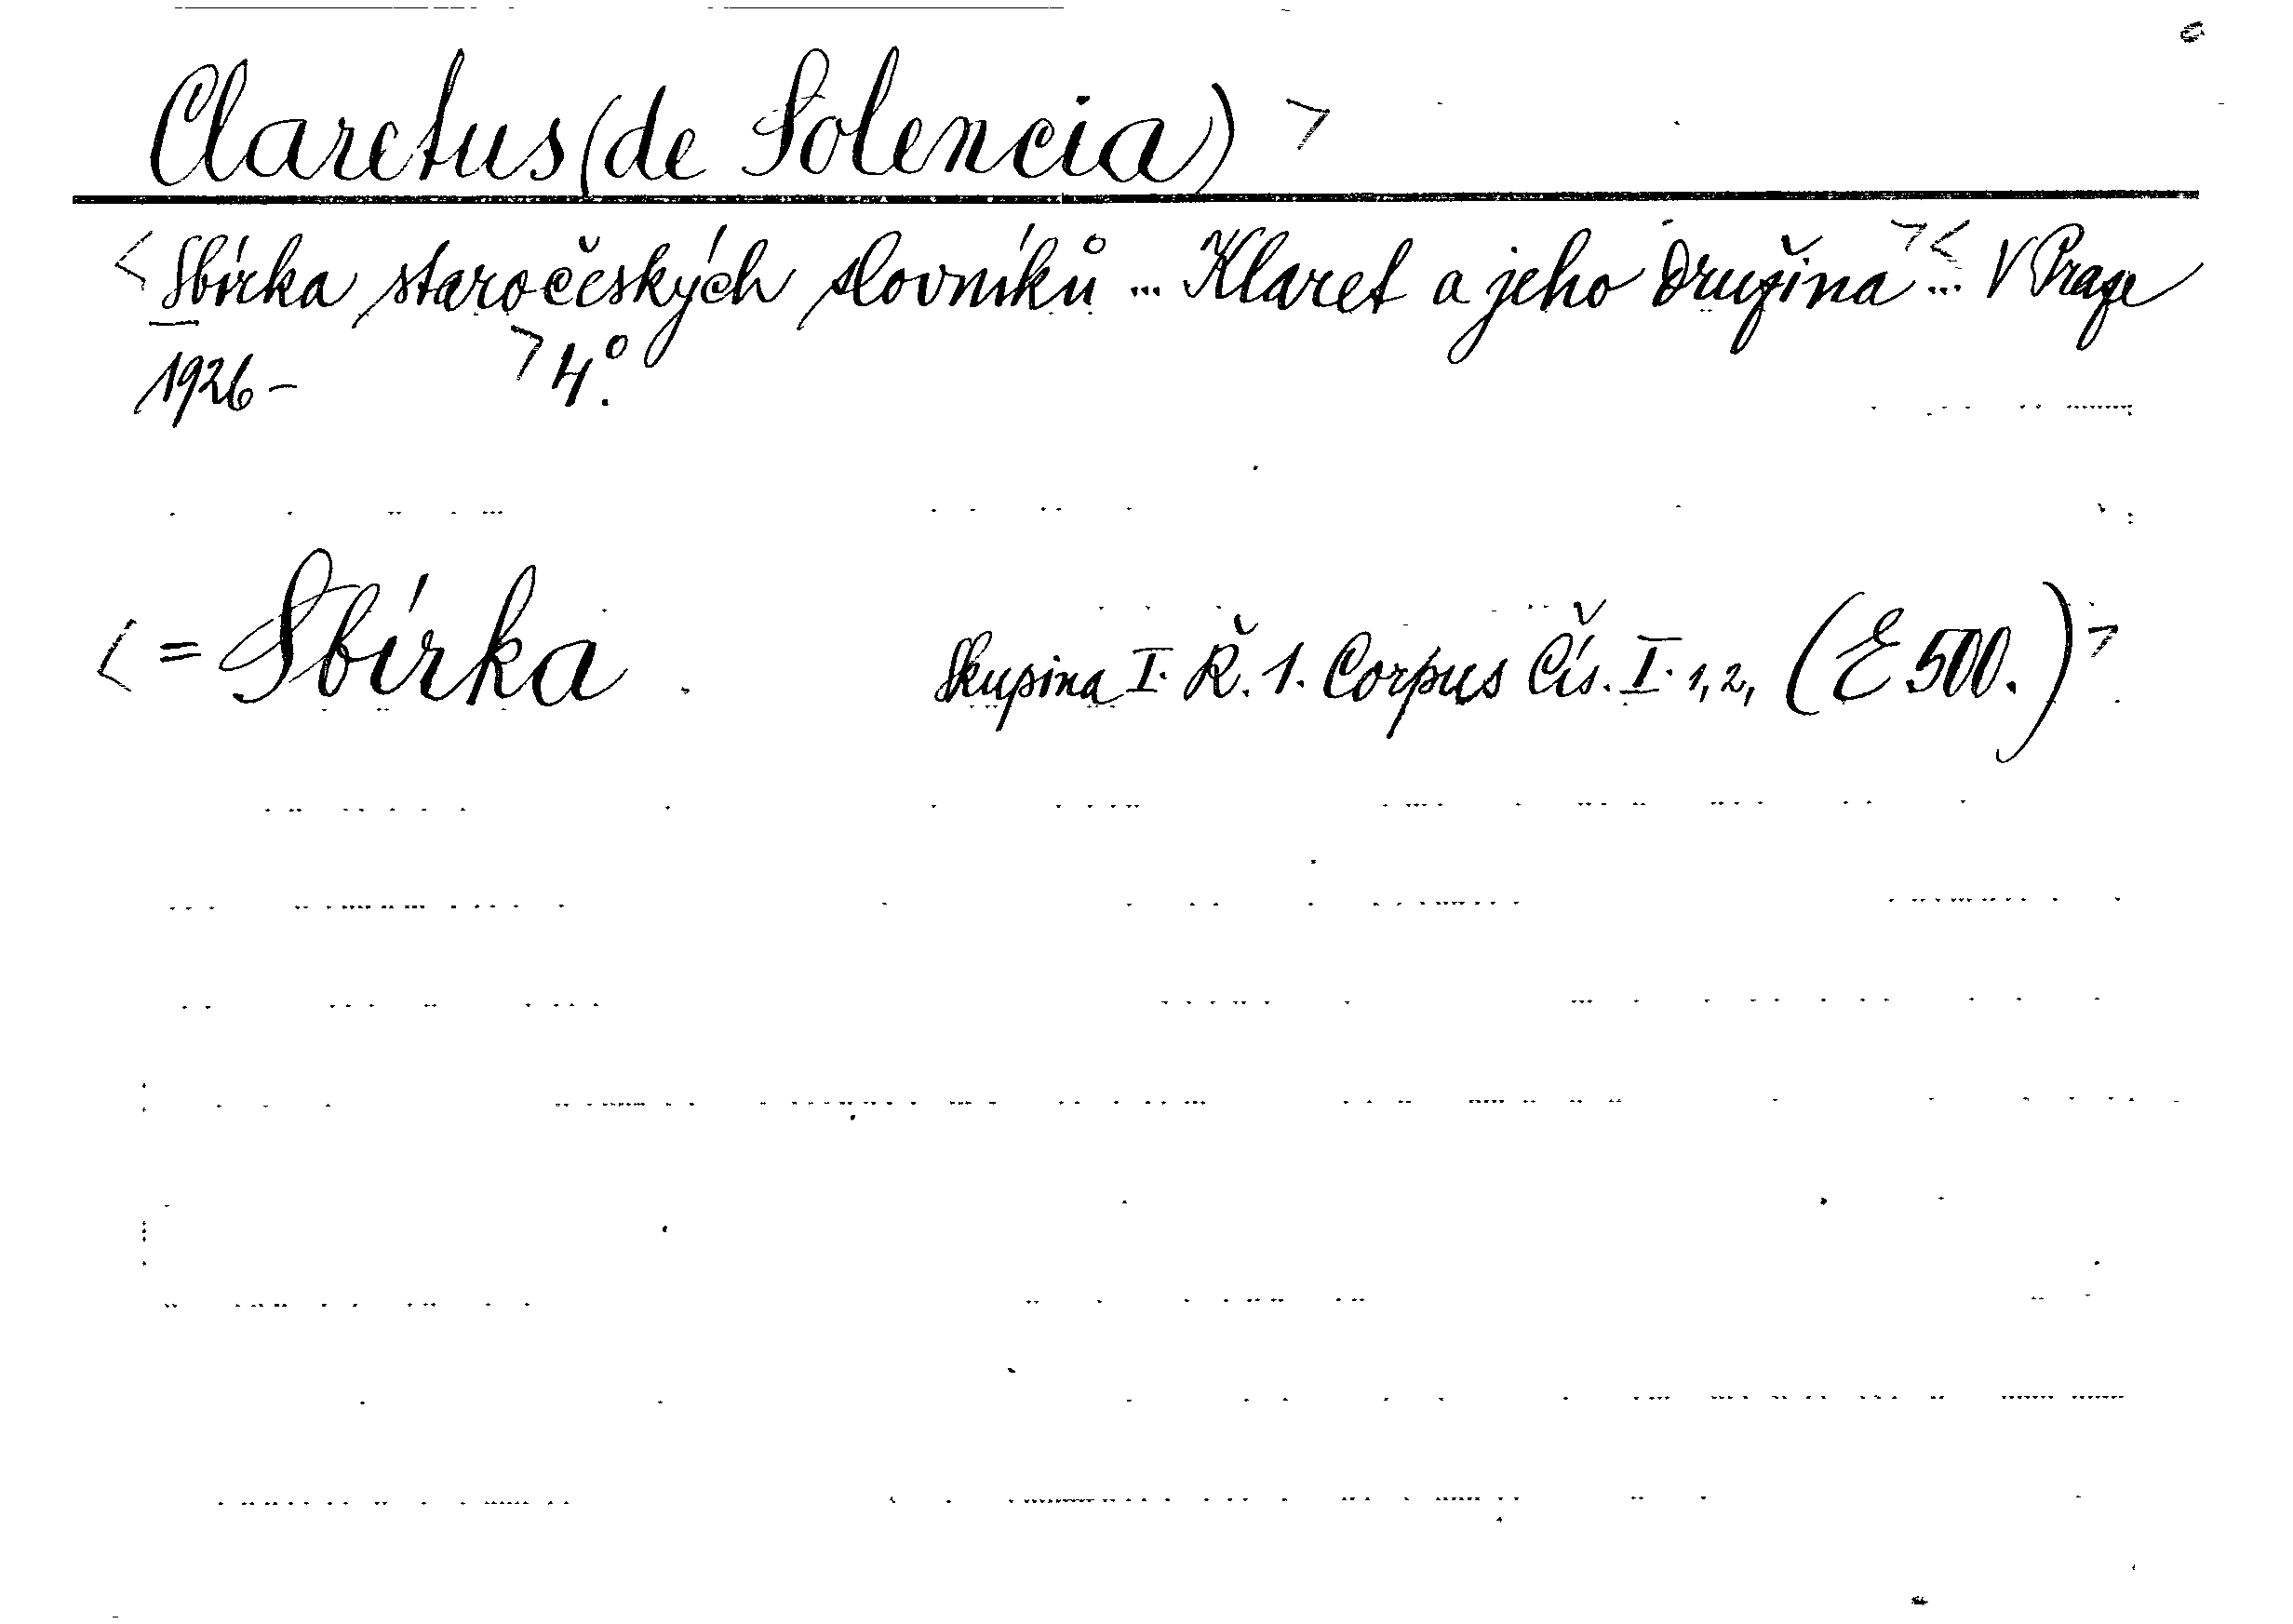 Claretus (de Solencia) >
< Sbírka staročeských slovníků ... Klaret a jeho družina >< ... V Praze
1926 – > 4°.
< = Sbírka Skupina I. Ř. 1. Corpus Čís. I. 1, 2, (E 500.) >